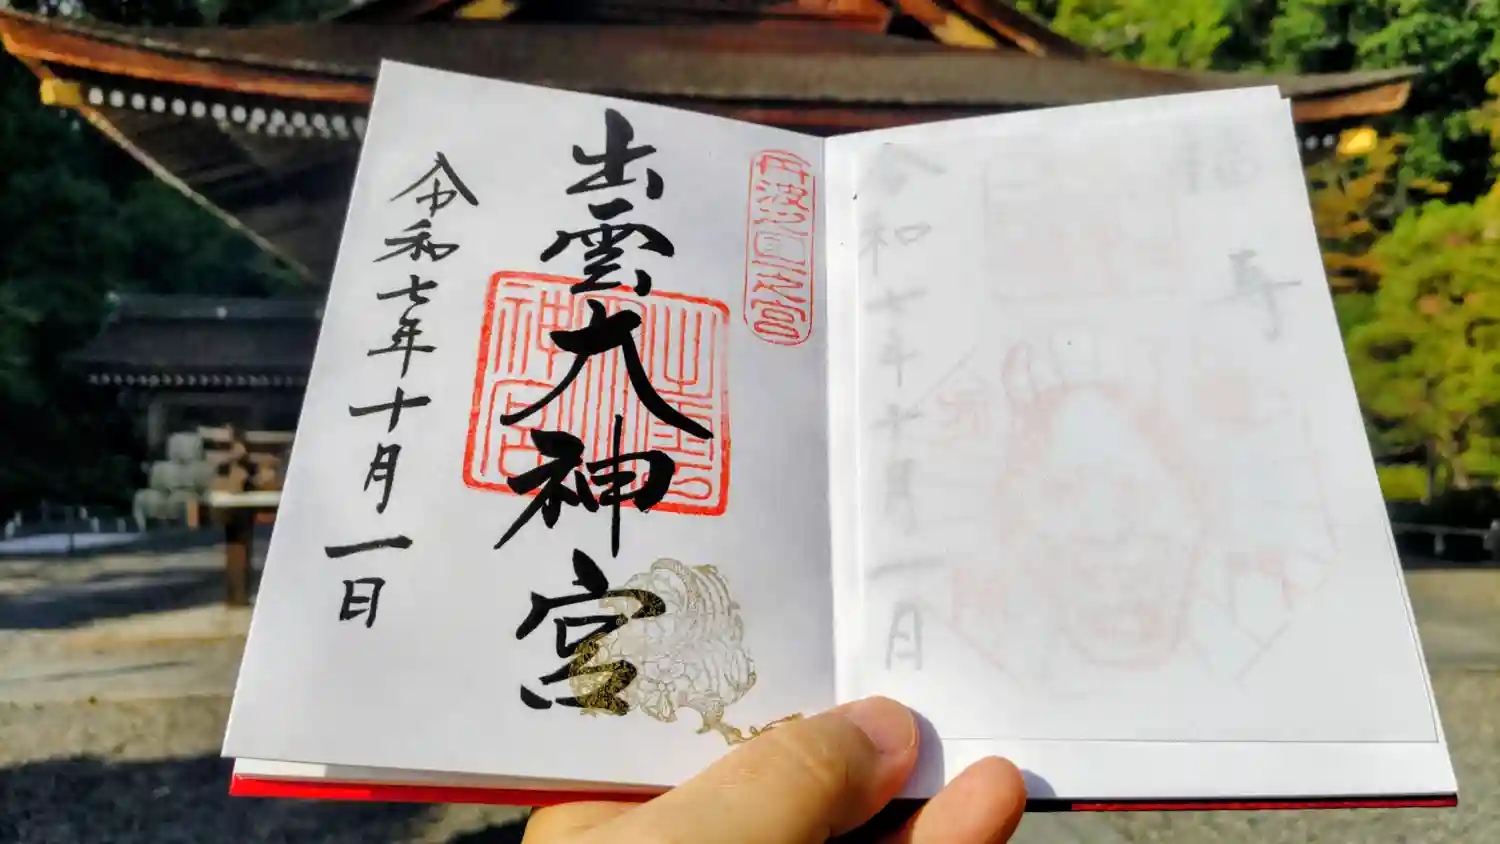 丹波國一之宮
出雲大神宮
令和七年十月一日